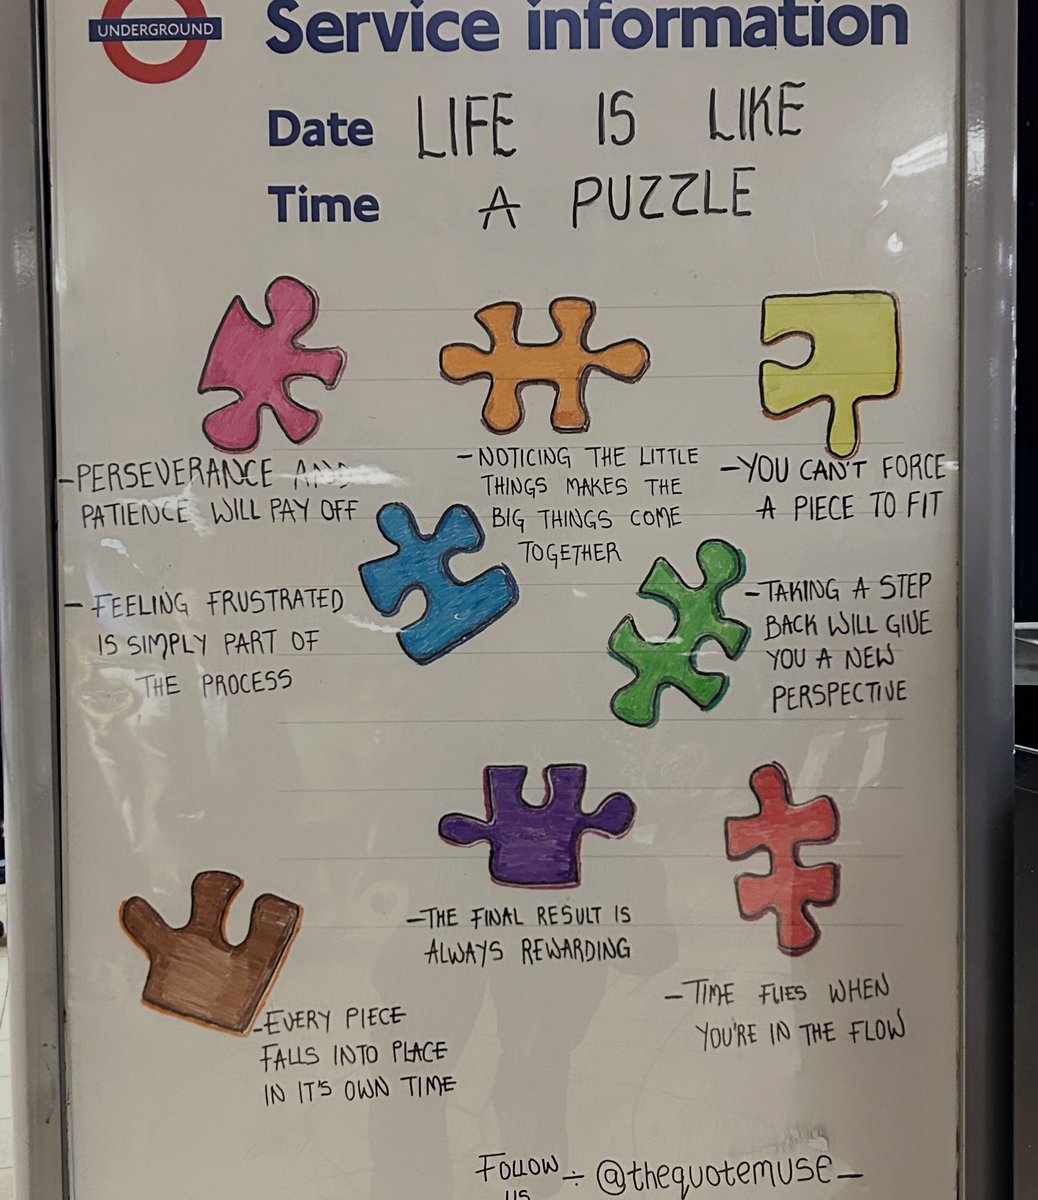 UNDERGROUND
Service information
Date LIFE IS LIKE
Time A PUZZLE
-PERSEVERANCE AND
PATIENCE WILL PAY OFF
-NOTICING THE LITTLE
THINGS MAKES THE
BIG THINGS COME
TOGETHER
-YOU CAN'T FORCE
A PIECE TO FIT
- FEELING FRUSTRATED
IS SIMPLY PART OF
THE PROCESS
-TAKING A STEP
BACK WILL GIVE
YOU A NEW
PERSPECTIVE
-THE FINAL RESULT IS
ALWAYS REWARDING
-EVERY PIECE
FALLS INTO PLACE
IN IT'S OWN TIME
-TIME FLIES WHEN
YOU'RE IN THE FLOW
FOLLOW ÷ @thequotemuse_
US